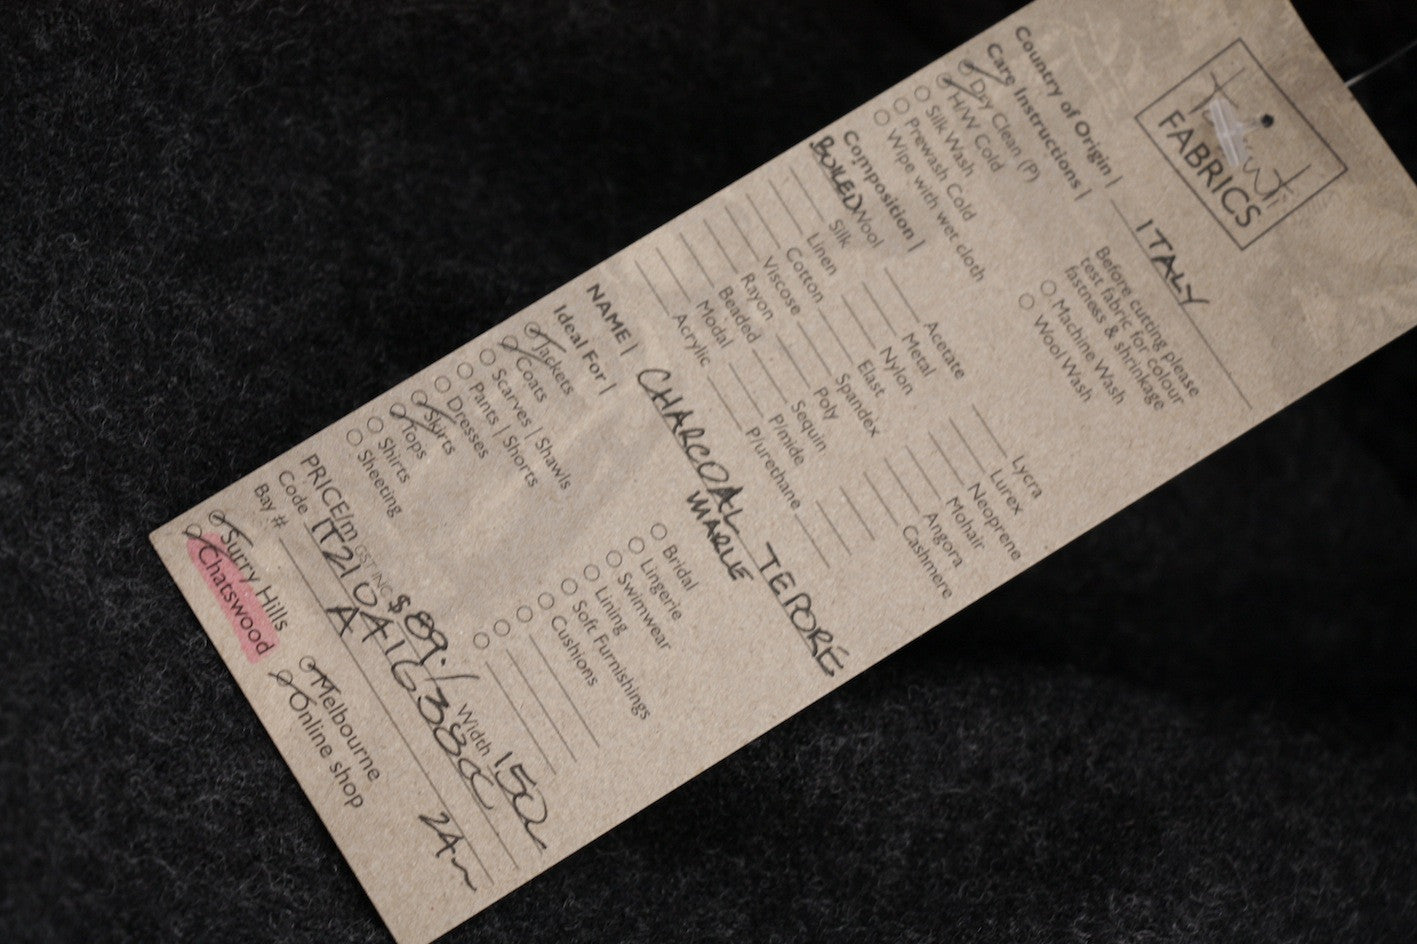 FABRICS
Country of Origin | ITALY
Care Instructions |
Dry Clean (P)
H/W Cold
Silk Wash
Prewash Cold
Wipe with wet cloth
Before cutting please
test fabric for colour
fastness & shrinkage
Machine Wash
Wool Wash
Composition |
BOILED Wool
Silk
Linen
Cotton
Viscose
Rayon
Beaded
Modal
Acrylic
Acetate
Metal
Nylon
Elast
Spandex
Poly
Sequin
P/mide
P/urethane
Lycra
Lurex
Neoprene
Mohair
Angora
Cashmere
NAME | CHARCOAL TEPORÉ
MARLE
Ideal For |
Jackets
Coats
Scarves | Shawls
Pants | Shorts
Dresses
Skirts
Tops
Shirts
Sheeting
Bridal
Lingerie
Swimwear
Lining
Soft Furnishings
Cushions
PRICE/m GST INC $89./ Width 150
Code IT210416380C
Bay # A 24m
Surry Hills
Chatswood
Melbourne
Online shop